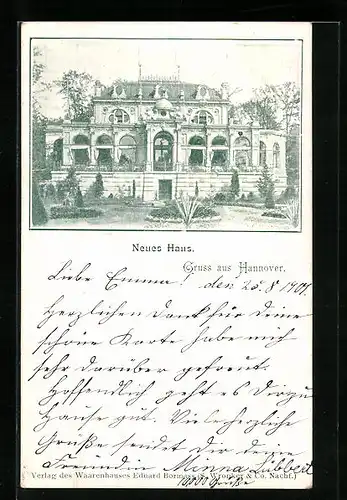 Neues Haus.
Gruss aus Hannover.
Liebe Emma! den 25. 8 1901.
Herzlichen Dank für Deine
schöne Karte habe mich
sehr darüber gefreut.
Hoffendlich geht es Dir zu
Hause gut. Viele herzliche
Grüße sendet dir deine
Freundin Minna Lübbert
Verlag des Waarenhauses Eduard & Co. Nachf.)
1000 Grüße